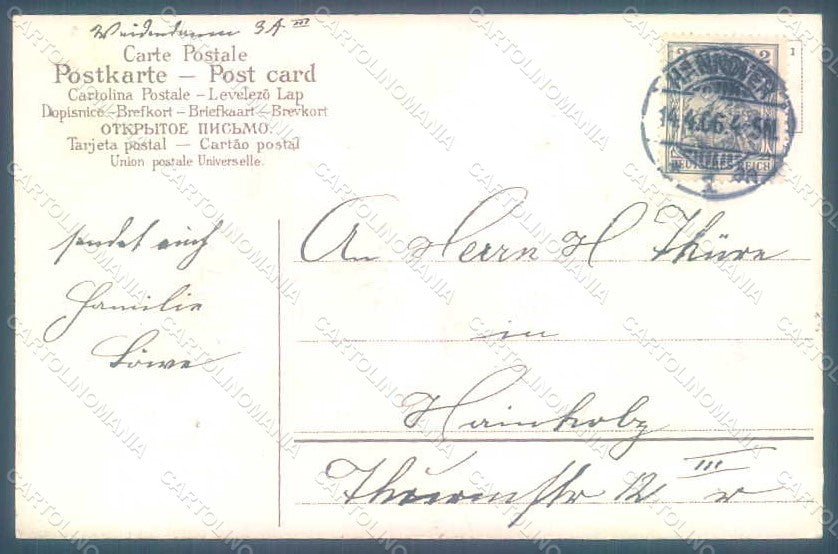 Weidendamm 3A III
Carte Postale
Postkarte – Post card
Cartolina Postale – Levelező Lap
Dopisnice – Brefkort – Briefkaart – Brevkort
ОТКРЫТОЕ ПИСЬМО.
Tarjeta postal – Cartão postal
Union postale Universelle.
2 2
1
HANNOVER
14.4.06.4-5N.
1
DEUTSCHES REICH
sendet auch
Familie
Löwe
An Herrn H Thüre
in
Hainholz
12 III r
CARTOLINOMANIA